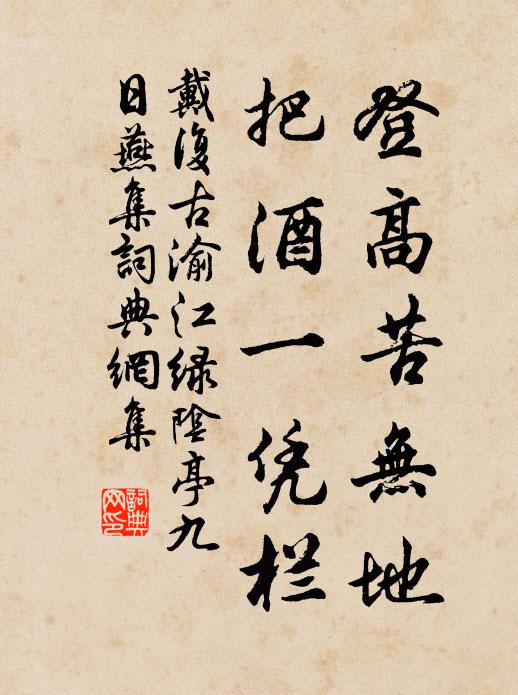 登高苦無地
把酒一凭栏
戴復古渝江绿陰亭九
日燕集詞典網集
詞典
网印